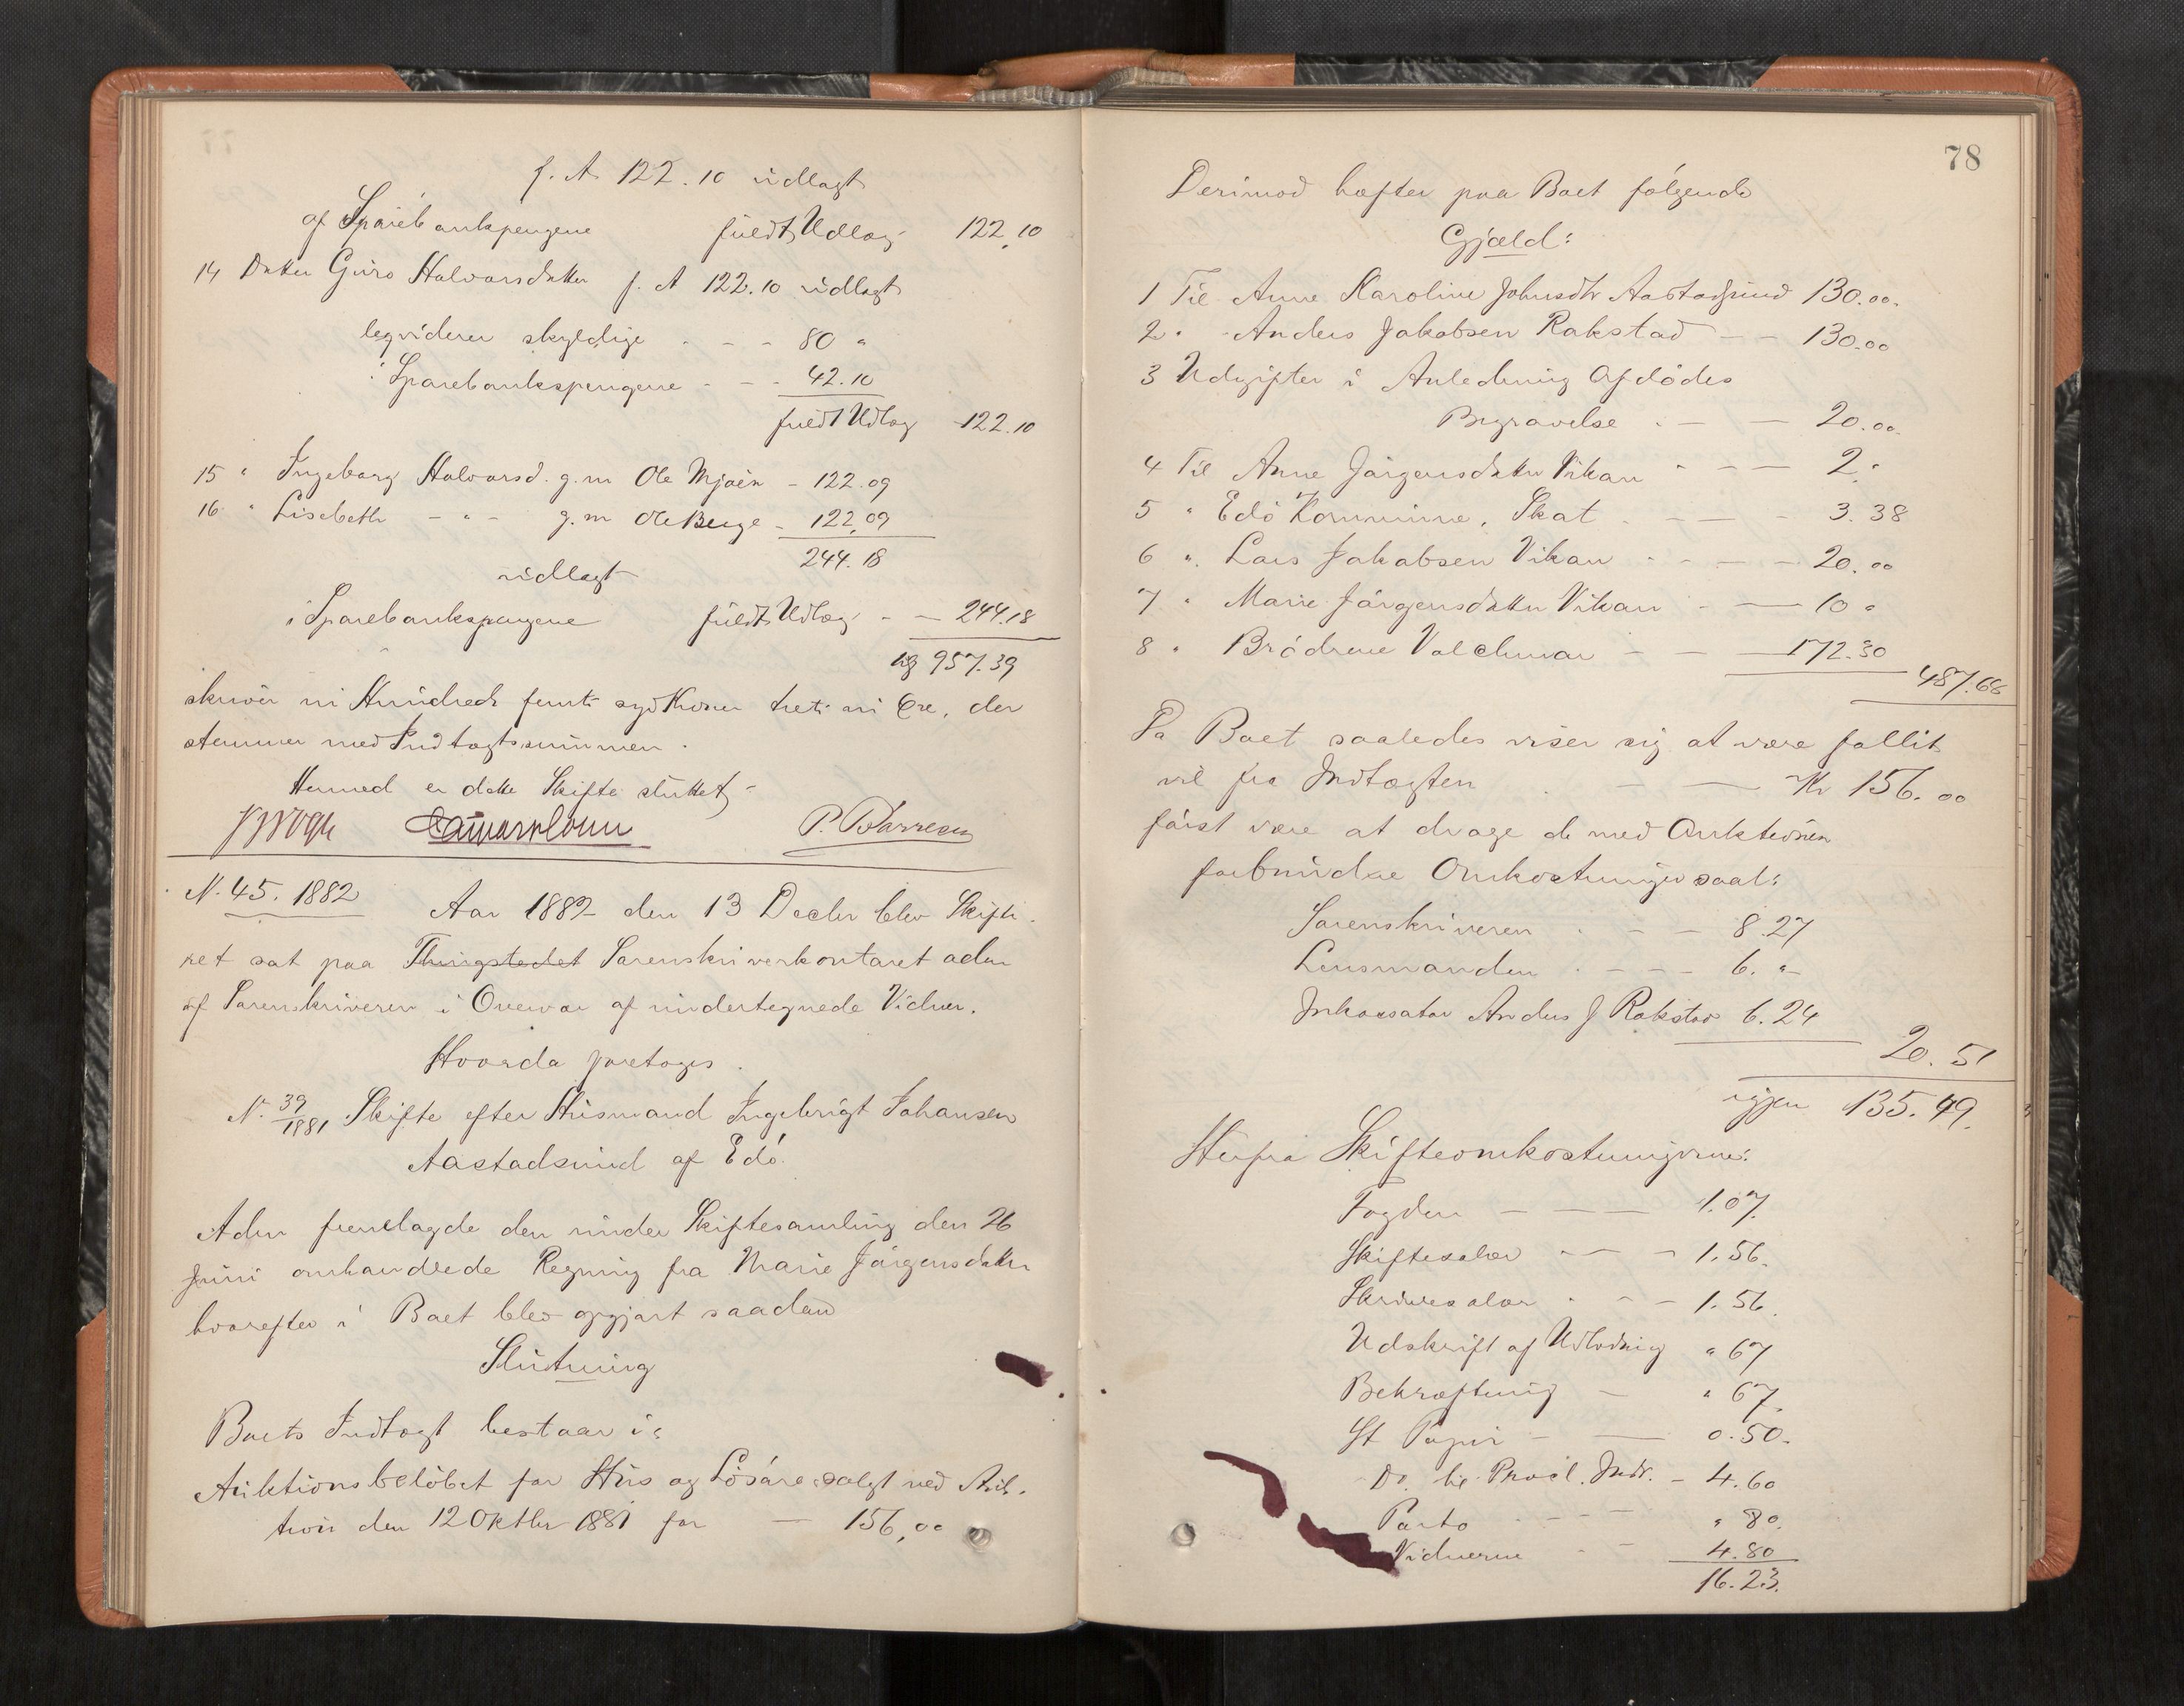 f. A 122.10 udlagt
af Sparebankpengene fuldt Udlæg 122.10
14 Datter Guro Halvorsdatter f. A 122.10 udlagt
legviderer skyldige - - - 80 "
i Sparebankspengene - - - 42.10
fuldt Udlæg 122.10
15 " Ingeborg Halvorsd. g. m Ole Mjøen - 122.09
16 " Lisebeth - " - g. m Ole Berge - 122.09
244.18
udlagt
i Sparebankspengene fuldt Udlæg - - 244.18
957.39
skriver ni Hundrede femti syv Kroner treti ni Øre, der
stemmer med Indtægtssummen.
Hermed er dette Skifte sluttet,
N. 45. 1882
Aar 1882 den 13 Decbr blev Skifte-
ret sat paa Thingstedet Sorenskriverkontoret adm
af Sorenskriveren i Overvær af undertegnede Vidner.
Hvorda foretoges.
N. 39/1881 Skifte efter Husmand Ingebrigt Johansen
Aastadsund af Edø.
Adm fremlagde den under Skiftesamling den 26
Juni omhandlede Regning fra Marie Jørgensdatter
hvorefter i Boet blev opgjort saadan
Slutning
Boets Indtægt bestaar i:
Auktionsbeløbet for Hus og Løsøre solgt ved Auk-
tion den 12 Oktbr 1881 for — 156,00
78
Derimod hæfter paa Boet følgende
Gjæld:
1 Til Anne Karoline Johnsdtr Aastadsund 130.00.
2 " Anders Jakobsen Rakstad - - 130.00
3 Udgifter i Anledning Afdødes
Begravelse - - - 20.00.
4 Til Anne Jørgensdatter Vikan - - - 2."
5 " Edø Kommune, Skat - - - 3.38
6 " Lars Jakobsen Vikan - - - - 20.00
7 " Marie Jørgensdatter Vikan - - 10 "
8 " Brødrene Volckmar - - - 172.30
487.68
Da Boet saaledes viser sig at være fallit
vil fra Indtægten - - Kr 156.00
først være at drage de med Auktionen
forbundne Omkostninger saal:
Sorenskriveren - - - 8.27
Lensmanden - - - - 6. "
Inkassator Anders J Rakstad 6.24
20.51
igjen 135.49.
Herfra Skifteomkostningerne:
Fogden - - - 1.07.
Skiftesalær - - - 1.56.
Skriversalær - - - 1.56.
Udskrift af Udlodning " 67
Bekræftning - " 67.
St Papir - - 0.50.
Do. til Procl. Indr. - 4.60
Porto - - - " 80.
Vidnerne - - 4.80
16.23.